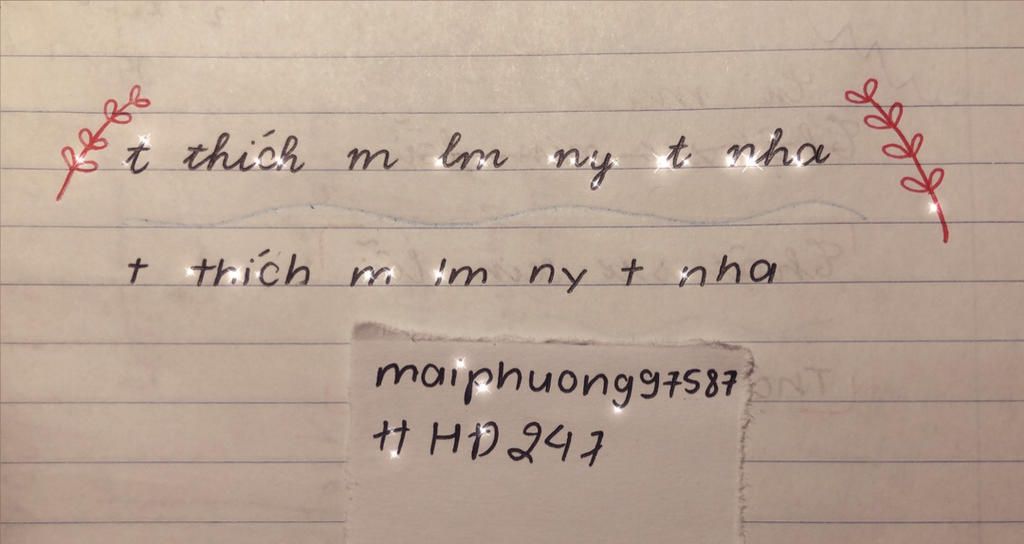 t thích m lm ny t nha
t thích m lm ny t nha
maiphuong97587
# HD247